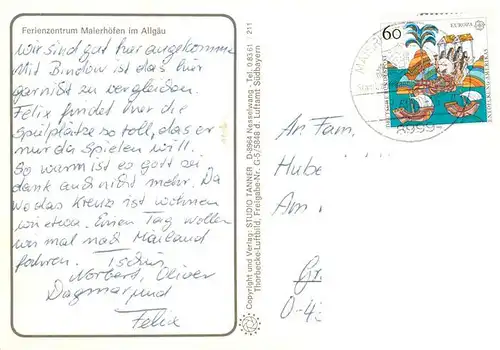 Ferienzentrum Maierhöfen im Allgäu
wir sind gut hier angekommen
Mit Bindow ist das hier
garnicht zu vergleichen.
Felix findet hier die
Spielplätze so toll, das er
nur da Spielen will.
So warm ist es gott sei
dank auch nicht mehr. Da
wo das Kreuz ist wohnen
wir etwa. Einen Tag wollen
wir mal nach Mailand
fahren. Tschüß
Norbert, Oliver
Dagmar und
Felix
Copyright und Verlag: STUDIO TANNER · D-8964 Nesselwang · Tel. 0 83 61 / 211
Thorbecke-Luftbild, Freigabe-Nr. G-5/5848 d. Luftamt Südbayern
60
EUROPA
8999
An Fam.
Hube
Am
Gr
O-43